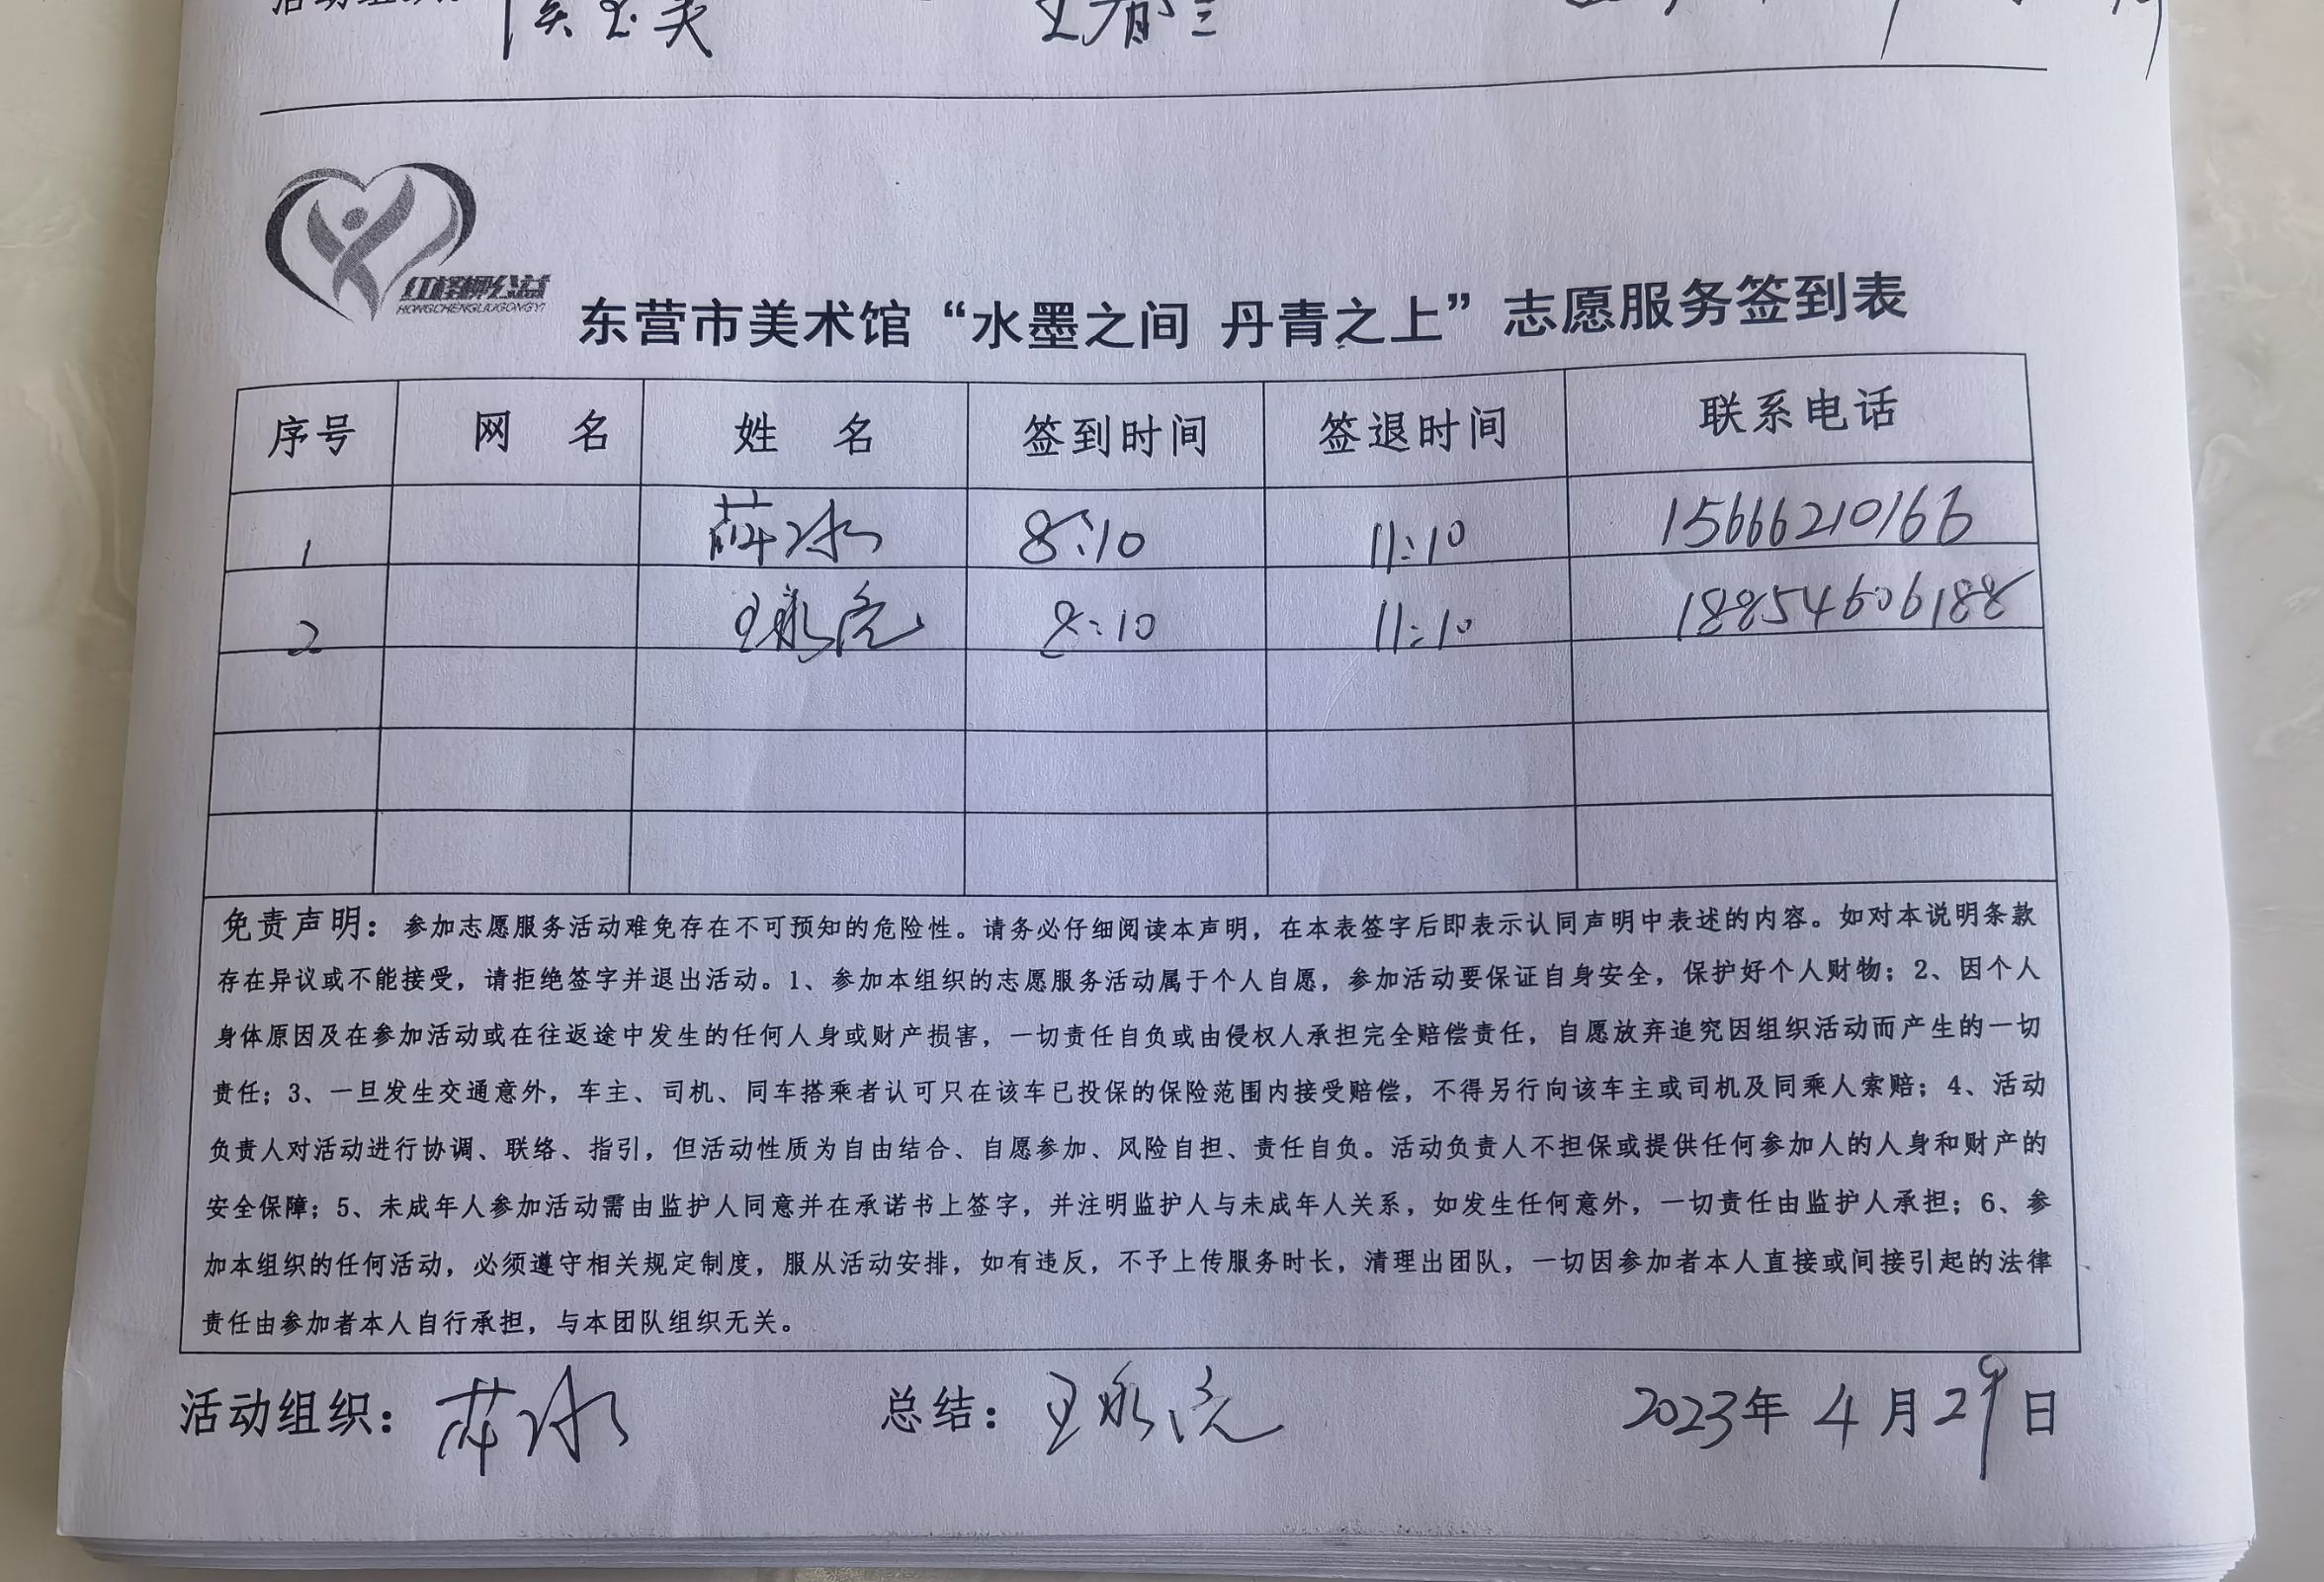 活动组织：
东营市美术馆“水墨之间 丹青之上”志愿服务签到表
红柽柳公益
HONGCHENGLIUGONGYI
序号 网 名 姓 名 签到时间 签退时间 联系电话
1 薛冰 8:10 11:10 15666210166
2 王永亮 8:10 11:10 18854606188
免责声明：参加志愿服务活动难免存在不可预知的危险性。请务必仔细阅读本声明，在本表签字后即表示认同声明中表述的内容。如对本说明条款
存在异议或不能接受，请拒绝签字并退出活动。1、参加本组织的志愿服务活动属于个人自愿，参加活动要保证自身安全，保护好个人财物；2、因个人
身体原因及在参加活动或在往返途中发生的任何人身或财产损害，一切责任自负或由侵权人承担完全赔偿责任，自愿放弃追究因组织活动而产生的一切
责任；3、一旦发生交通意外，车主、司机、同车搭乘者认可只在该车已投保的保险范围内接受赔偿，不得另行向该车主或司机及同乘人索赔；4、活动
负责人对活动进行协调、联络、指引，但活动性质为自由结合、自愿参加、风险自担、责任自负。活动负责人不担保或提供任何参加人的人身和财产的
安全保障；5、未成年人参加活动需由监护人同意并在承诺书上签字，并注明监护人与未成年人关系，如发生任何意外，一切责任由监护人承担；6、参
加本组织的任何活动，必须遵守相关规定制度，服从活动安排，如有违反，不予上传服务时长，清理出团队，一切因参加者本人直接或间接引起的法律
责任由参加者本人自行承担，与本团队组织无关。
活动组织：薛冰 总结：王永亮 2023年 4 月 29 日